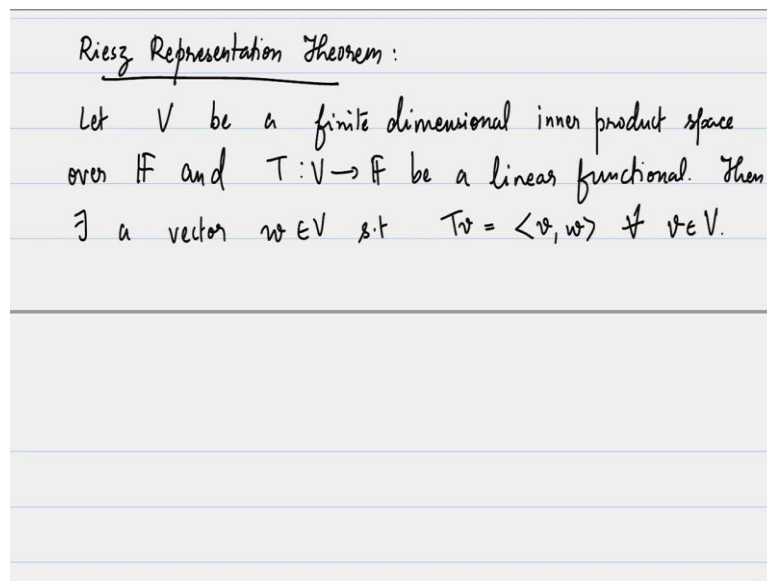 Riesz Representation Theorem :
Let V be a finite dimensional inner product space
over 𝔽 and T : V → 𝔽 be a linear functional. Then
∃ a vector w ∈ V s.t Tv = <v, w> ∀ v ∈ V.